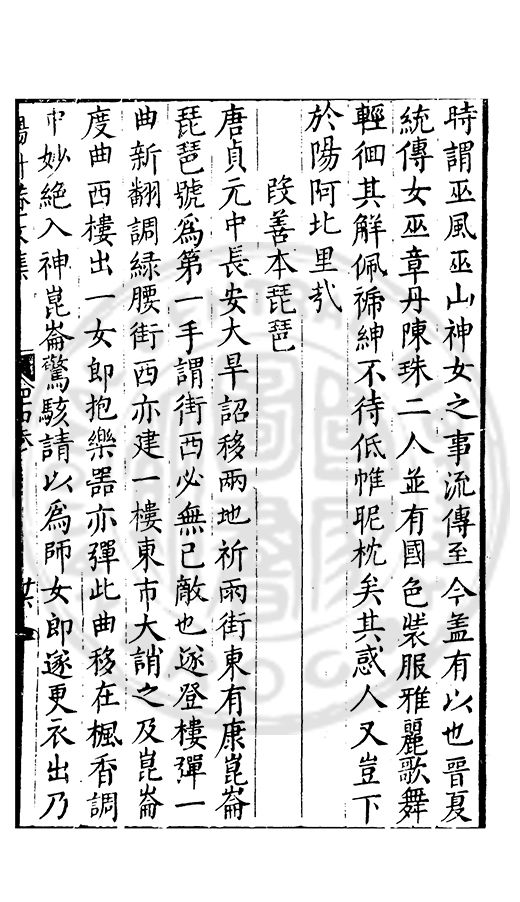 時謂巫風巫山神女之事流傳至今盖有以也晉夏
統傳女巫章丹陳珠二人並有國色裝服雅麗歌舞
輕徊其解佩褫紳不待低帷昵枕矣其惑人又豈下
於陽阿北里㢤
段善本琵琶
唐貞元中長安大旱詔移兩地祈雨街東有康崑崙
琵琶號爲第一手謂街西必無已敵也遂登樓彈一
曲新翻調緑腰街西亦建一樓東市大誚之及崑崙
度曲西樓出一女郎抱樂器亦彈此曲移在楓香調
中妙絕入神崑崙驚駭請以爲師女郎遂更衣出乃